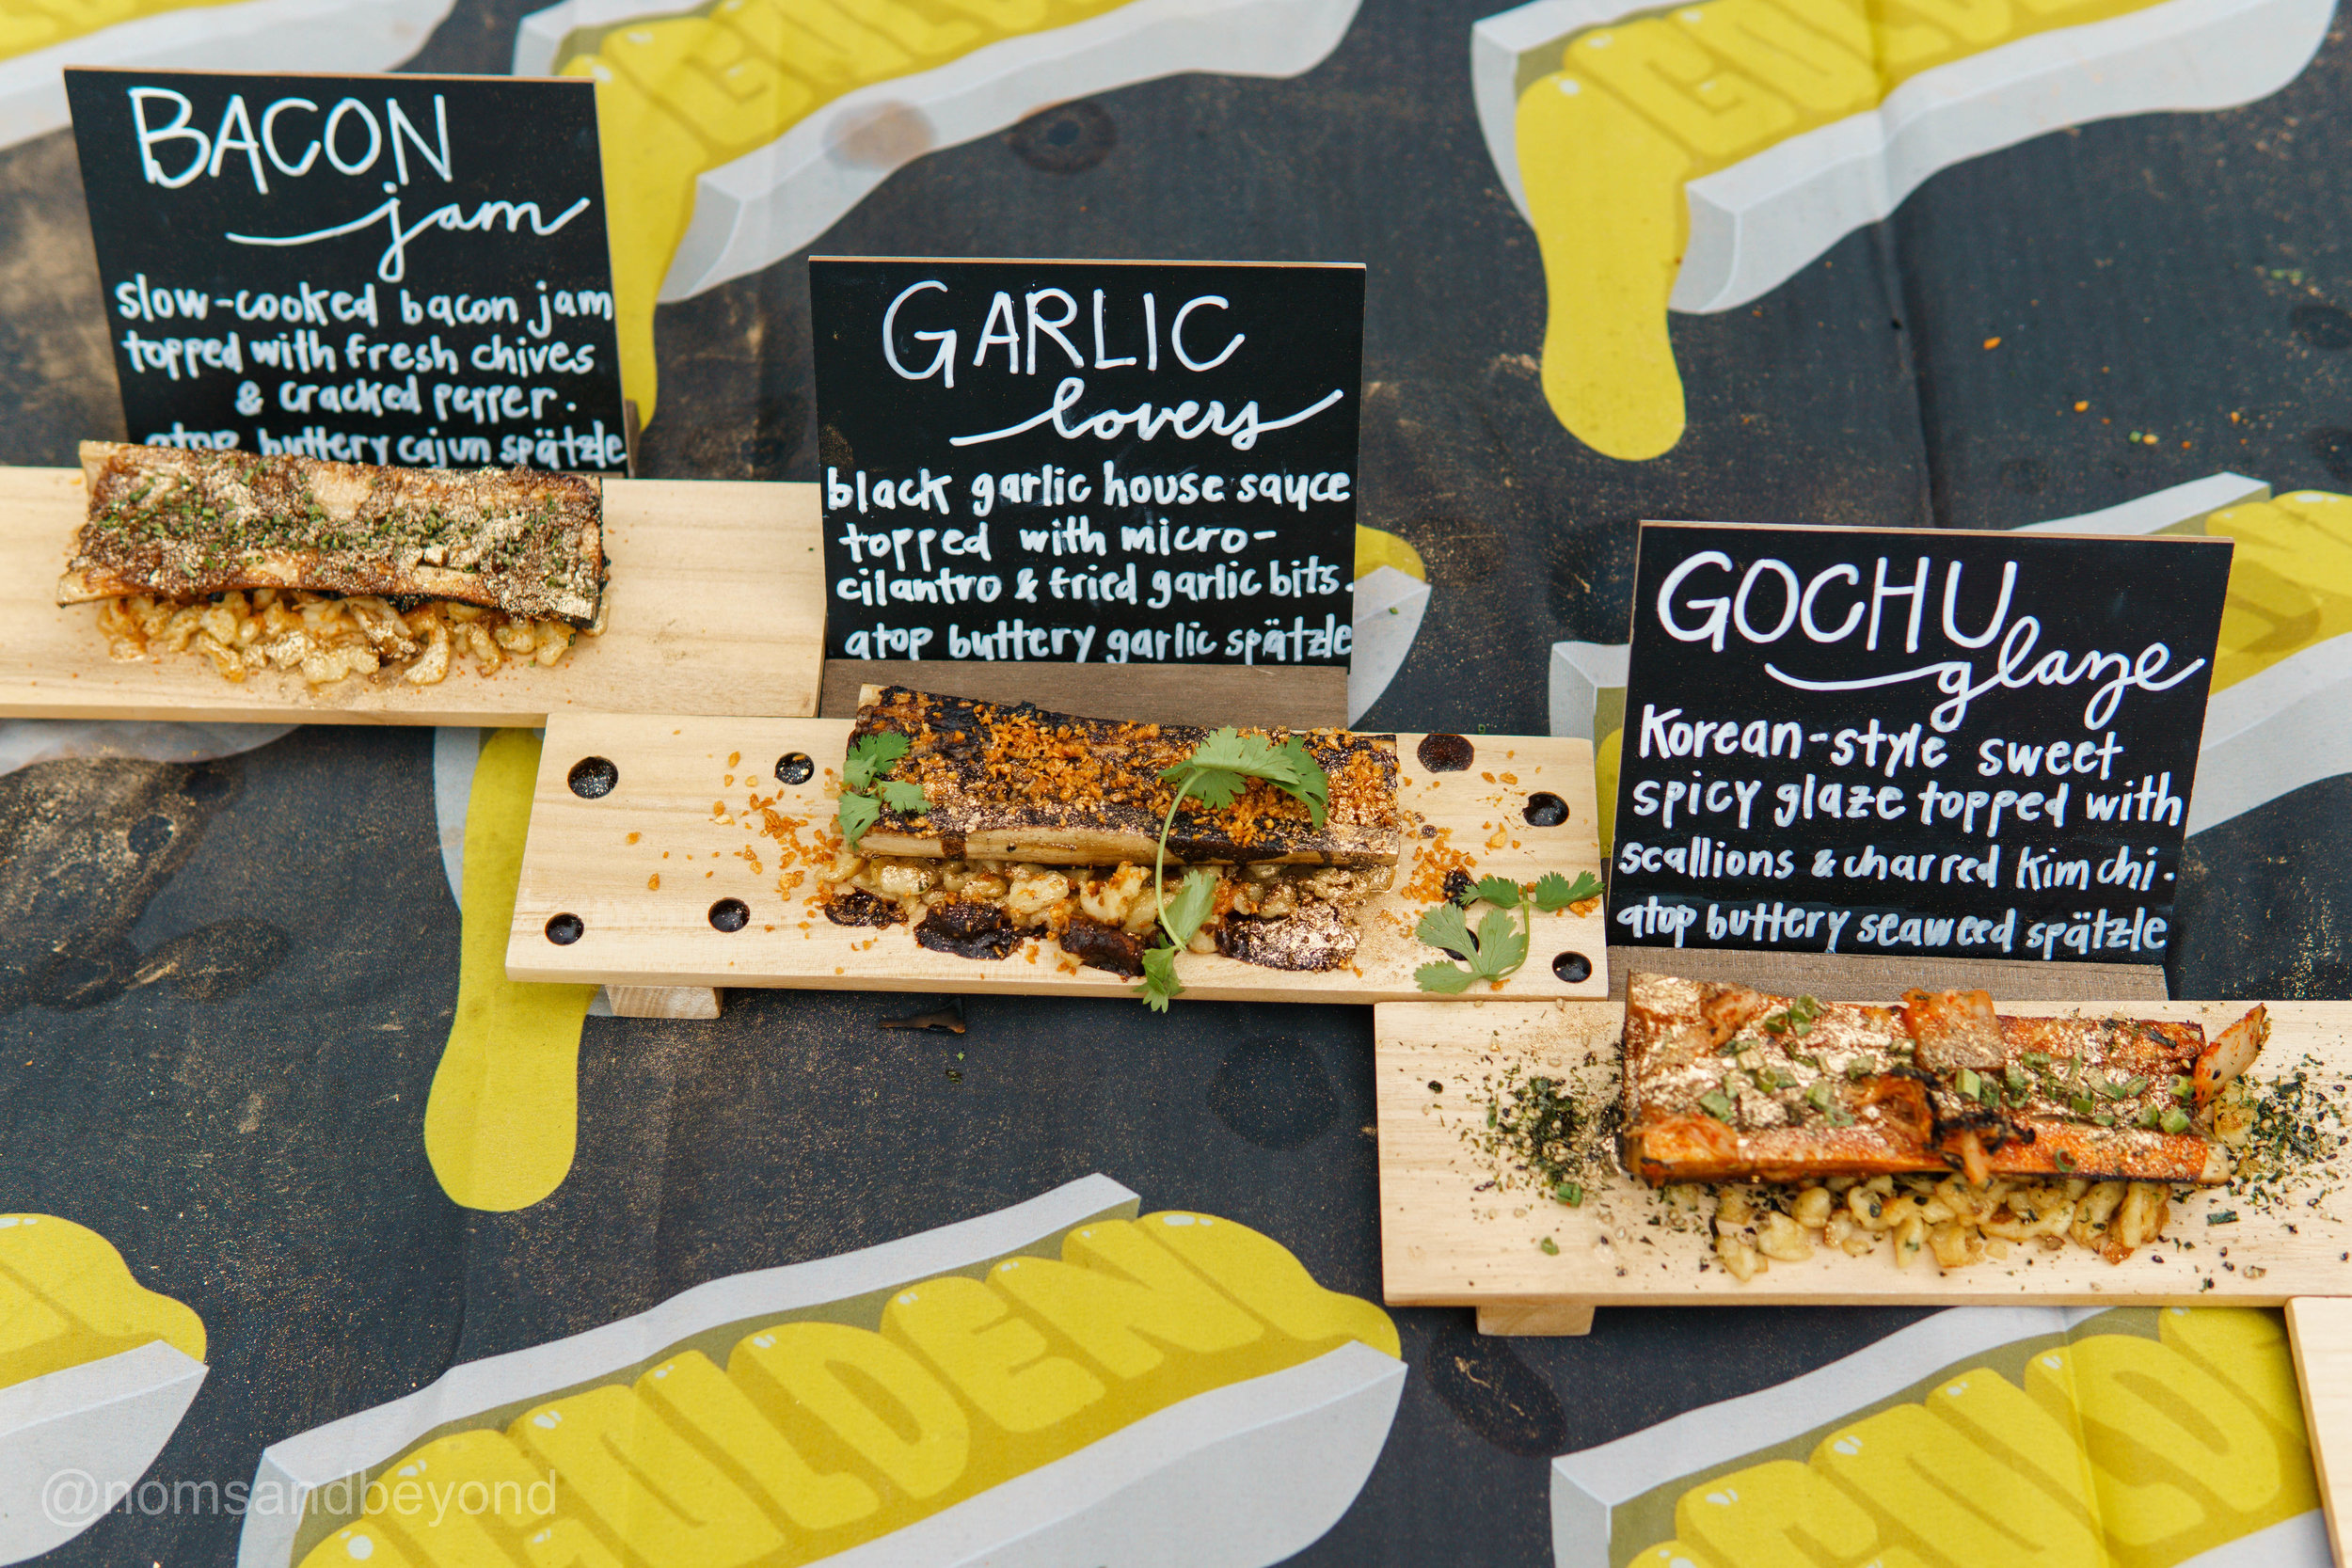 BACON
jam
slow-cooked bacon jam
topped with fresh chives
& cracked pepper.
atop buttery cajun spätzle
GARLIC
lovers
black garlic house sauce
topped with micro-
cilantro & fried garlic bits.
atop buttery garlic spätzle
GOCHU
glaze
Korean-style sweet
spicy glaze topped with
scallions & charred kimchi.
atop buttery seaweed spätzle
GOLDEN
@nomsandbeyond